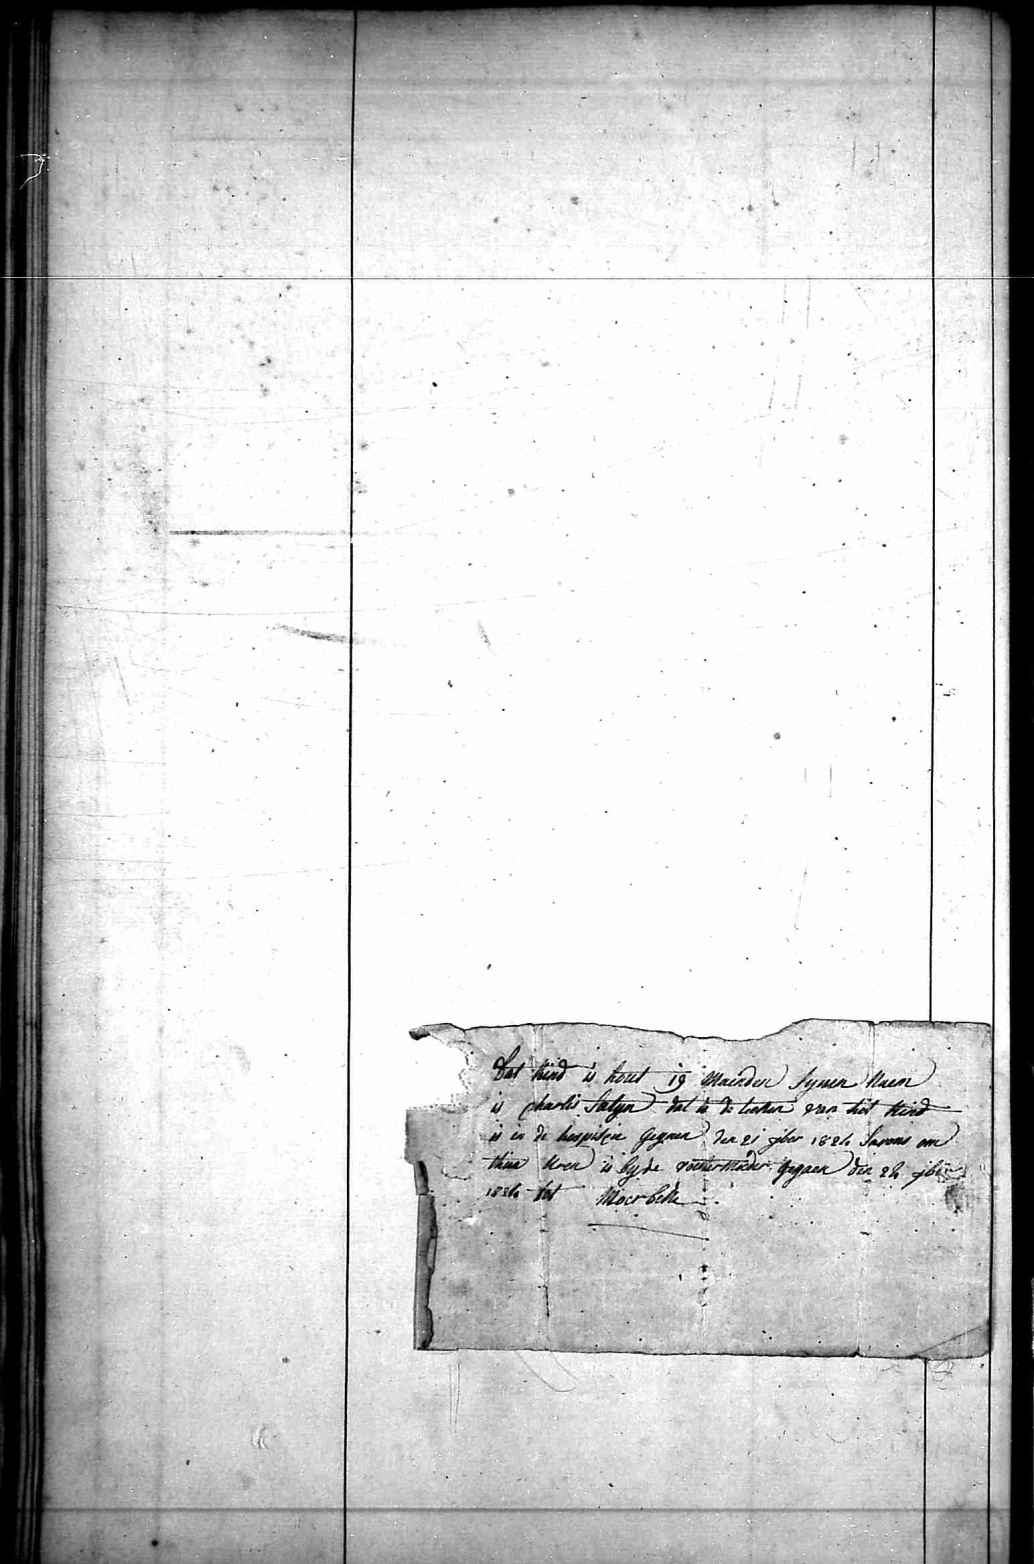 Dat Kind is hout 19 Maenden Synen Naem
is Charlis Satyn dat is de teeken van het Kind
is in de hospisçie Gegaen den 21 9ber 1824 Savons om
thien Uren is by de voestermoeder Gegaen den 24 9ber
1824 tot Moerbeke